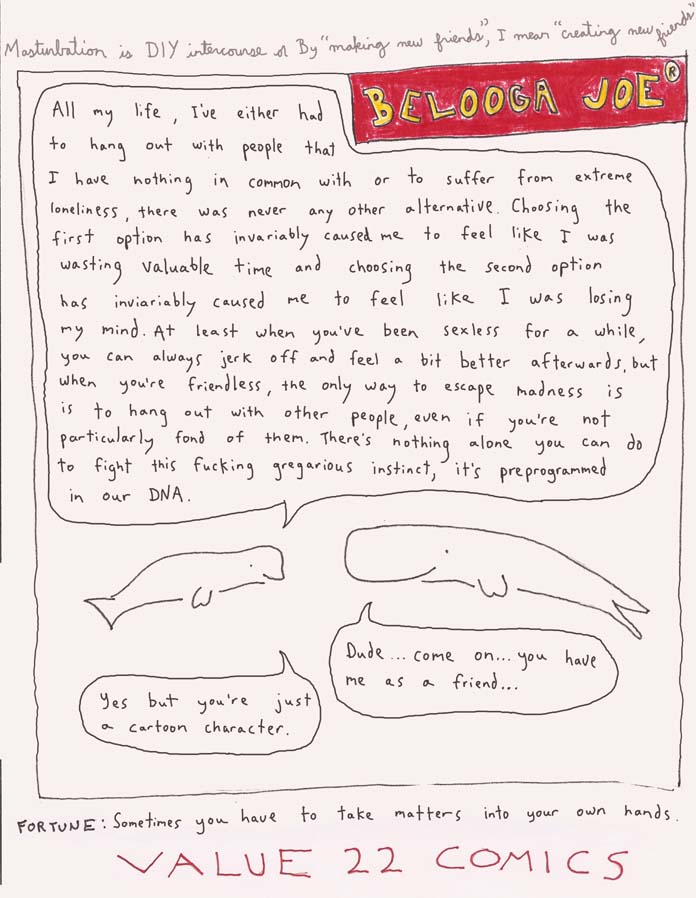 Masturbation is DIY intercourse or By "making new friends", I mean "creating new friends"
BELOOGA JOE®
All my life, I've either had
to hang out with people that
I have nothing in common with or to suffer from extreme
loneliness, there was never any other alternative. Choosing the
first option has invariably caused me to feel like I was
wasting valuable time and choosing the second option
has inviariably caused me to feel like I was losing
my mind. At least when you've been sexless for a while,
you can always jerk off and feel a bit better afterwards, but
when you're friendless, the only way to escape madness is
is to hang out with other people, even if you're not
particularly fond of them. There's nothing alone you can do
to fight this fucking gregarious instinct, it's preprogrammed
in our DNA.
Dude... come on... you have
me as a friend...
Yes but you're just
a cartoon character.
FORTUNE: Sometimes you have to take matters into your own hands.
VALUE 22 COMICS